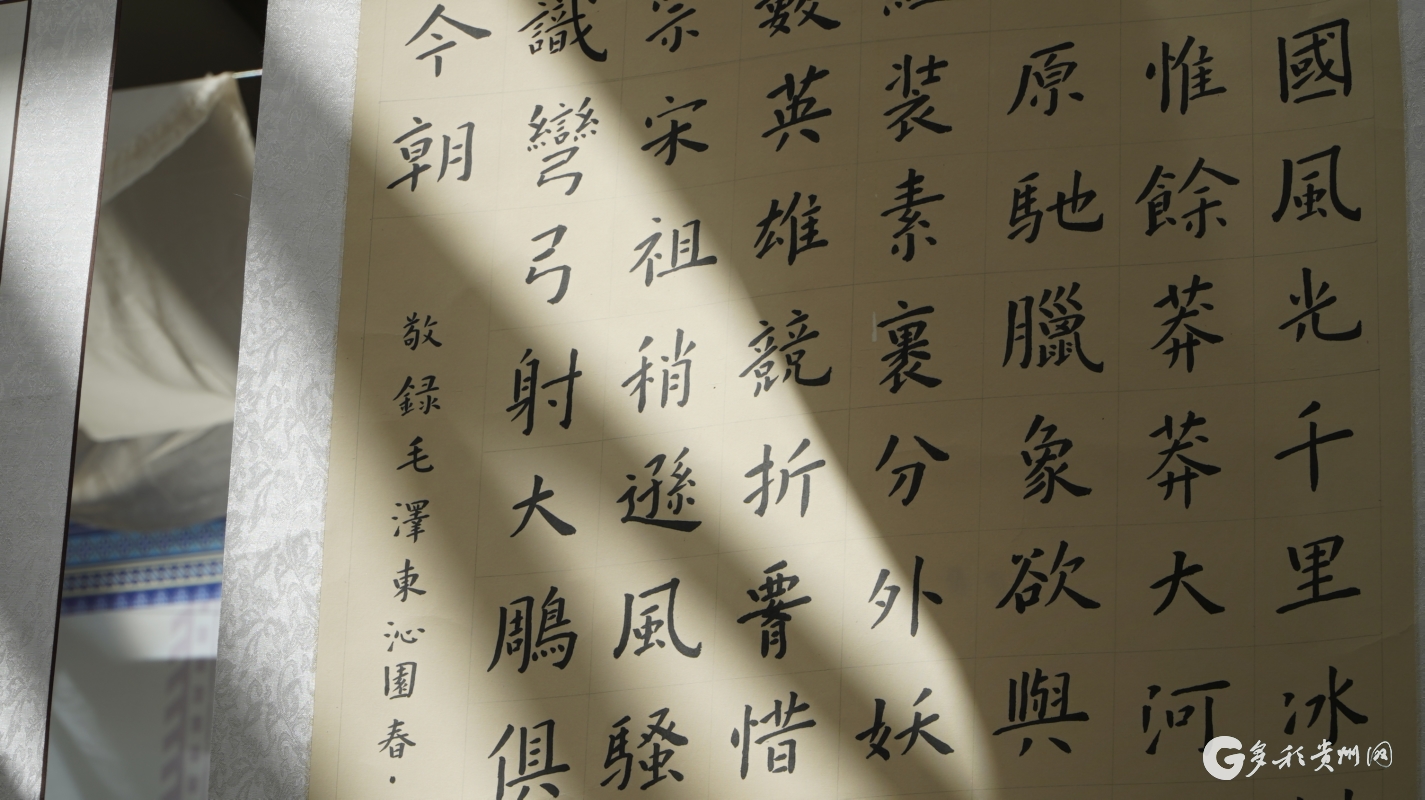 國風光千里冰
惟餘莽莽大河
原馳臘象欲與
裝素裹分外妖
數英雄競折腰惜
宗宋祖稍遜風騷
識彎弓射大鵰俱
今朝
敬録毛澤東沁園春·
多彩贵州网